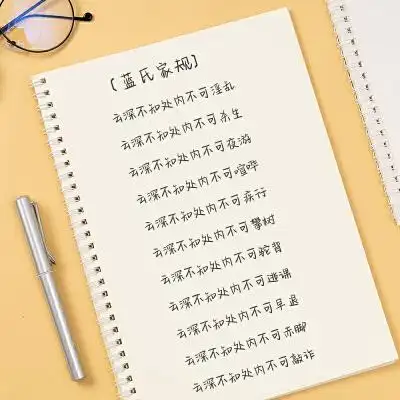 [蓝氏家规]
云深不知处内不可淫乱
云深不知处内不可杀生
云深不知处内不可夜游
云深不知处内不可喧哗
云深不知处内不可疾行
云深不知处内不可攀树
云深不知处内不可驼背
云深不知处内不可逃课
云深不知处内不可早退
云深不知处内不可赤脚
云深不知处内不可敲诈